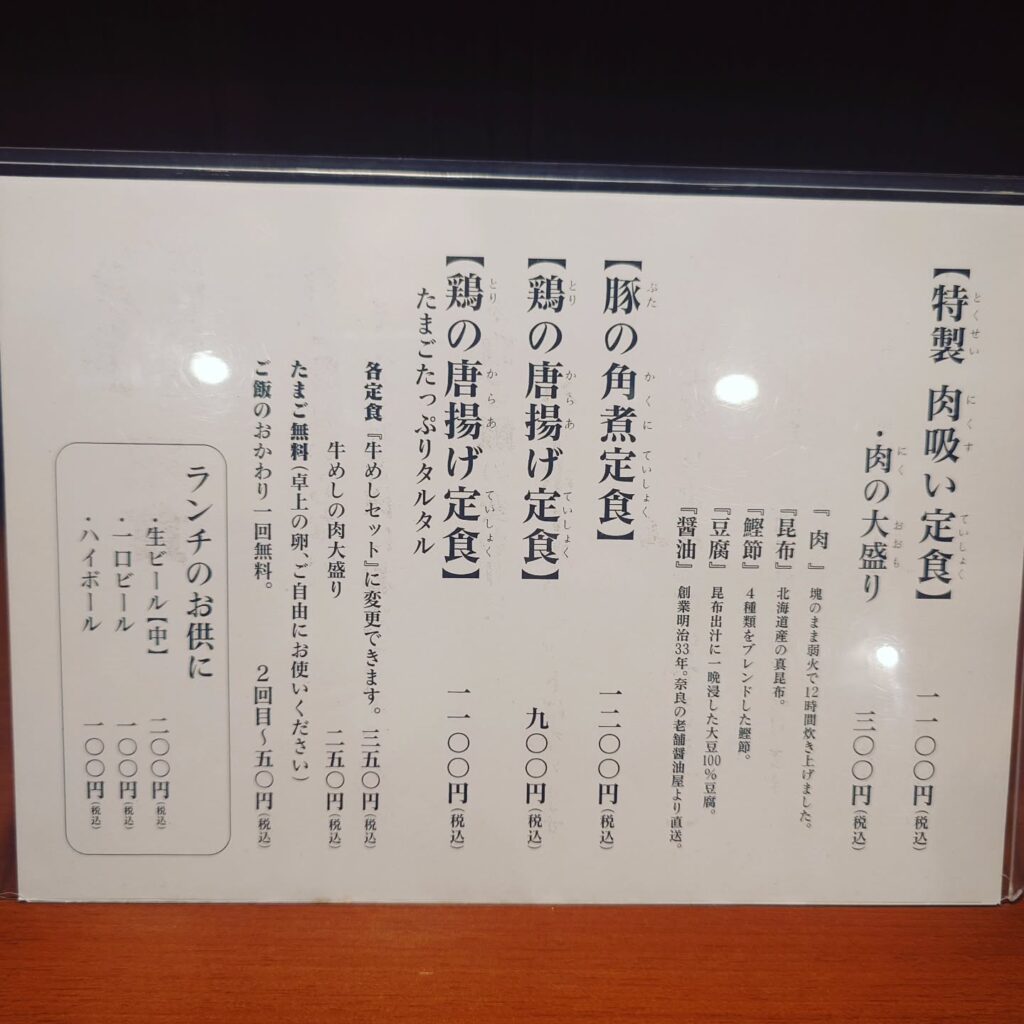 とくせい にくす ていしょく
【特製 肉吸い定食】 一一〇〇円(税込)
にく おおも
・肉の大盛り 三〇〇円(税込)
『肉』 塊のまま弱火で12時間炊き上げました。
『昆布』 北海道産の真昆布。
『鰹節』 4種類をブレンドした鰹節。
『豆腐』 昆布出汁に一晩浸した大豆100%豆腐。
『醤油』 創業明治33年。奈良の老舗醤油屋より直送。
ぶた かくに ていしょく
【豚の角煮定食】 一二〇〇円(税込)
とり からあ ていしょく
【鶏の唐揚げ定食】 九〇〇円(税込)
とり からあ ていしょく
【鶏の唐揚げ定食】 一一〇〇円(税込)
たまごたっぷりタルタル
各定食『牛めしセット』に変更できます。 三五〇円(税込)
牛めしの肉大盛り 二五〇円(税込)
たまご無料(卓上の卵、ご自由にお使いください)
ご飯のおかわり一回無料。 2回目〜五〇円(税込)
ランチのお供に
・生ビール【中】 二〇〇円(税込)
・一口ビール 一〇〇円(税込)
・ハイボール 一〇〇円(税込)